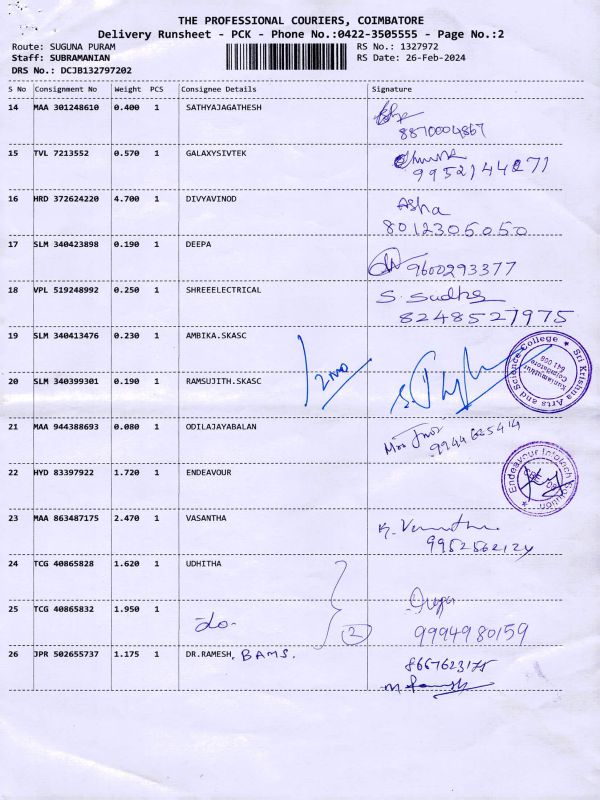 THE PROFESSIONAL COURIERS, COIMBATORE
Delivery Runsheet - PCK - Phone No.:0422-3505555 - Page No.:2
Route: SUGUNA PURAM
Staff: SUBRAMANIAN
DRS No.: DCJB132797202
RS No.: 1327972
RS Date: 26-Feb-2024
S No Consignment No Weight PCS Consignee Details Signature
14 MAA 301248610 0.400 1 SATHYAJAGATHESH
8870004867
15 TVL 7213552 0.570 1 GALAXYSIVTEK
9952144271
16 HRD 372624220 4.700 1 DIVYAVINOD Asha
8012305050
17 SLM 340423898 0.190 1 DEEPA
9600293377
18 VPL 519248992 0.250 1 SHREEELECTRICAL S. Sudha
8248527975
19 SLM 340413476 0.230 1 AMBIKA.SKASC
Sri Krishna Arts and Science College
Kuniamuthur
Coimbatore
641 008
20 SLM 340399301 0.190 1 RAMSUJITH.SKASC
21 MAA 944388693 0.080 1 ODILAJAYABALAN
9944625414
22 HYD 83397922 1.720 1 ENDEAVOUR
Endeavour Infotech Solution
23 MAA 863487175 2.470 1 VASANTHA
9952562124
24 TCG 40865828 1.620 1 UDHITHA
25 TCG 40865832 1.950 1
do-
2
9994980159
26 JPR 502655737 1.175 1 DR.RAMESH, BAMS.
8667623175